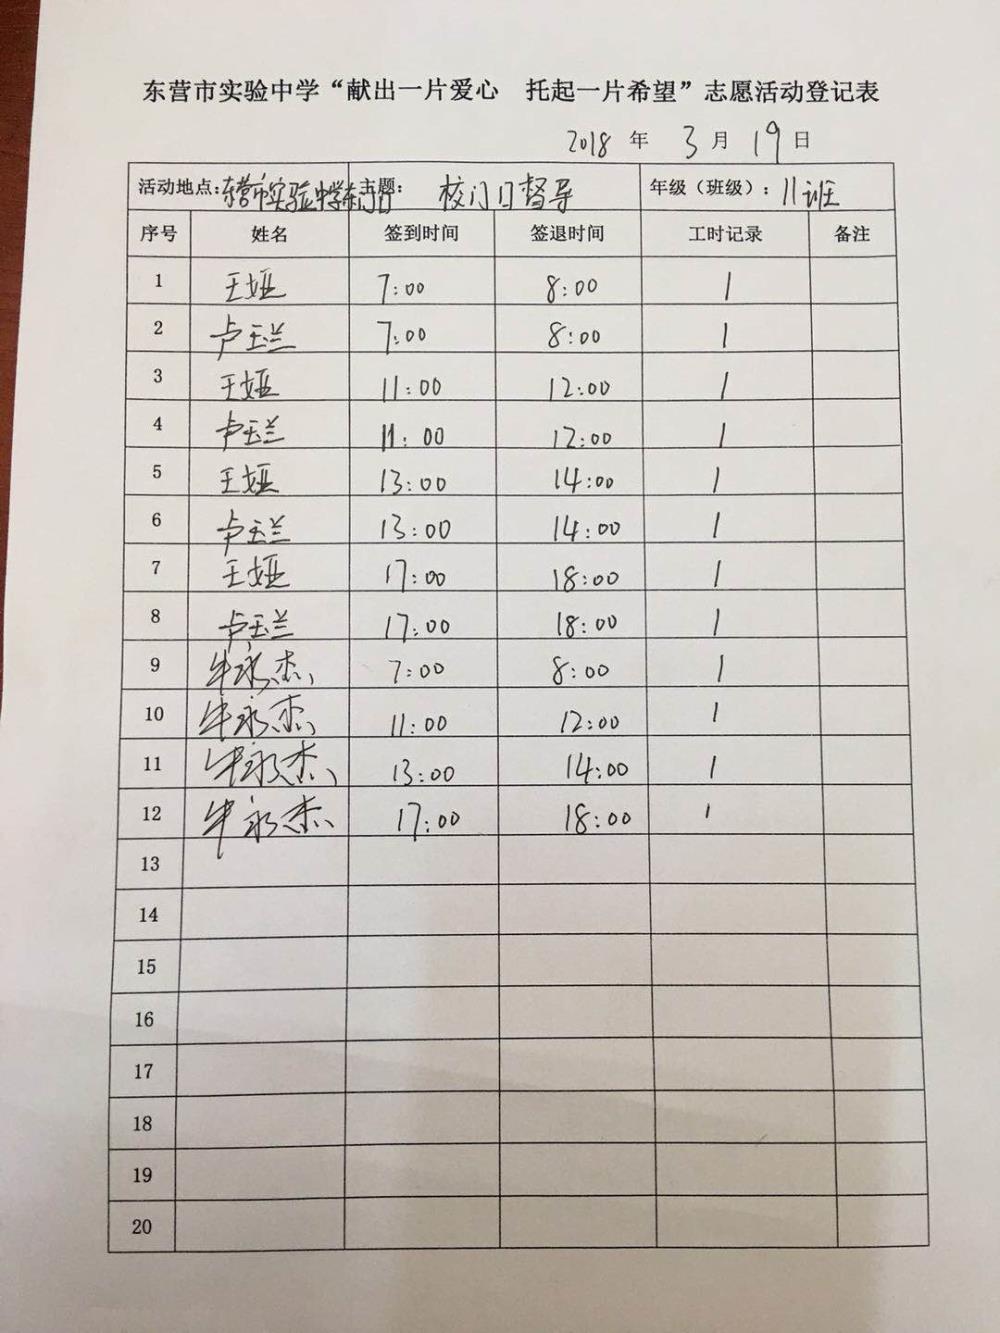 东营市实验中学“献出一片爱心 托起一片希望”志愿活动登记表
2018 年 3 月 19 日
活动地点:东营市实验中学东门口 主题: 校门口督导 年级（班级）: 11班
序号 姓名 签到时间 签退时间 工时记录 备注
1 王娅 7:00 8:00 1
2 卢玉兰 7:00 8:00 1
3 王娅 11:00 12:00 1
4 卢玉兰 11:00 12:00 1
5 王娅 13:00 14:00 1
6 卢玉兰 13:00 14:00 1
7 王娅 17:00 18:00 1
8 卢玉兰 17:00 18:00 1
9 牛永杰 7:00 8:00 1
10 牛永杰 11:00 12:00 1
11 牛永杰 13:00 14:00 1
12 牛永杰 17:00 18:00 1
13
14
15
16
17
18
19
20